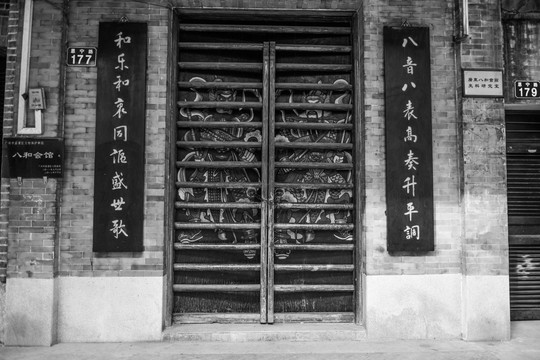 恩宁路
177
八和会馆
八音八表高奏升平調
和乐和衷同讴盛世歌
史料研究室
恩宁路
179